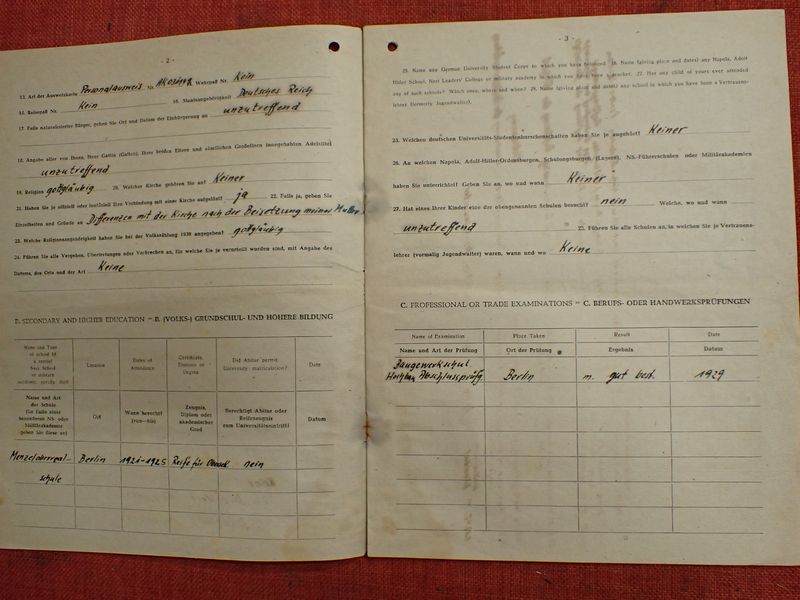 - 2 -
13. Art der Ausweiskarte Personalausweis Nr. Wehrpaß Nr. Kein
14. Reisepaß Nr. Kein 16. Staatsangehörigkeit Deutsches Reich
17. Falls naturalisierter Bürger, geben Sie Ort und Datum der Einbürgerung an unzutreffend
18. Angabe aller von Ihnen, Ihrer Gattin (Gatten), Ihrer beiden Eltern und sämtlichen Großeltern innegehabten Adelstitel
unzutreffend
19. Religion gottgläubig 20. Welcher Kirche gehören Sie an? Keiner
21. Haben Sie je offiziell oder inoffiziell Ihre Verbindung mit einer Kirche aufgelöst? ja 22. Falls ja, geben Sie
Einzelheiten und Gründe an Differenzen mit der Kirche nach der Beisetzung meiner Mutter
23. Welche Religionsangehörigkeit haben Sie bei der Volkszählung 1939 angegeben? gottgläubig
24. Führen Sie alle Vergehen, Übertretungen oder Verbrechen an, für welche Sie je verurteilt worden sind, mit Angabe des
Datums, des Orts und der Art Keine
B. SECONDARY AND HIGHER EDUCATION = B. (VOLKS-) GRUNDSCHUL- UND HÖHERE BILDUNG
Name and Type
of school (If
a special
Nazi School
or military
academy, specify this)
Location
Dates of
Attendance
Certificate,
Diploma or
Degree
Did Abitur permit
University matriculation?
Date
Name und Art
der Schule
(Im Falle einer
besonderen NS- oder
Militärakademie
geben Sie dies an)
Ort
Wann besucht?
(von—bis)
Zeugnis,
Diplom oder
akademischer
Grad
Berechtigt Abitur oder
Reifezeugnis
zum Universitätseintritt?
Datum
Menzeloberreal-
schule
Berlin
1921-1925
Reife für Obersek.
nein
- 3 -
25. Name any German University Student Corps to which you have belonged. 26. Name (giving place and dates) any Napola, Adolf
Hitler School, Nazi Leaders' College or military academy in which you have been a teacher. 27. Has any child of yours ever attended
any of such schools? Which ones, where and when? 28. Name (giving place and dates) any school in which you have been a Vertrauens-
lehrer (formerly Jugendwalter).
25. Welchen deutschen Universitäts-Studentenburschenschaften haben Sie je angehört? Keiner
26. An welchen Napola, Adolf-Hitler-Ordensburgen, Schulungsburgen, (Lagern), NS-Führerschulen oder Militärakademien
haben Sie unterrichtet? Geben Sie an, wo und wann Keiner
27. Hat eines Ihrer Kinder eine der obengenannten Schulen besucht? nein Welche, wo und wann
unzutreffend 28. Führen Sie alle Schulen an, in welchen Sie je Vertrauens-
lehrer (vormalig Jugendwalter) waren, wann und wo Keine
C. PROFESSIONAL OR TRADE EXAMINATIONS = C. BERUFS- ODER HANDWERKSPRÜFUNGEN
Name of Examination
Place Taken
Result
Date
Name und Art der Prüfung
Ort der Prüfung
Ergebnis
Datum
Baugewerkschul.
Hochbau Abschlussprüfg.
Berlin
m. gut best.
1929